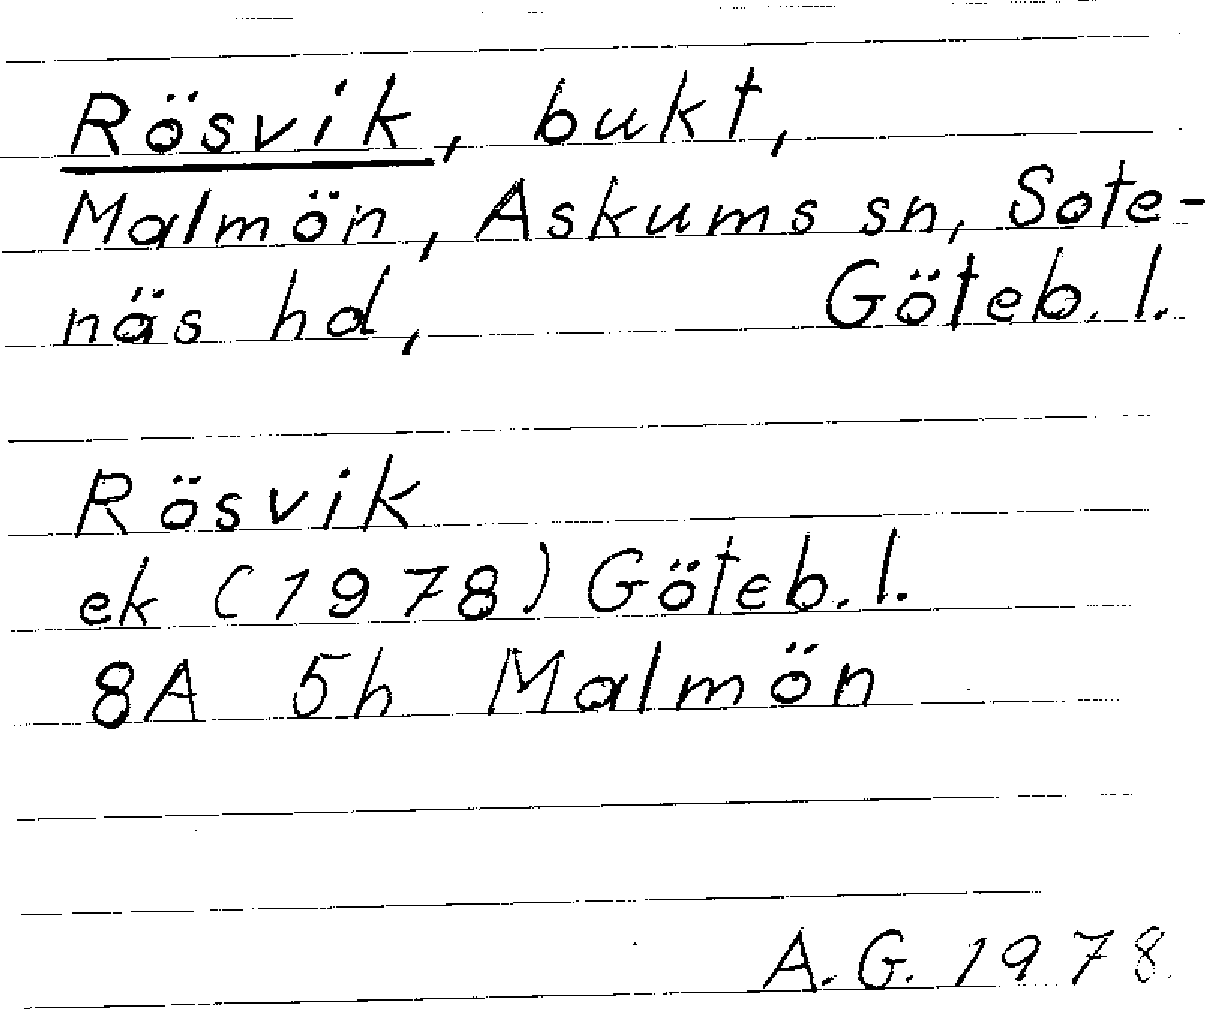 Rösvik, bukt,
Malmön, Askums sn, Sote-
näs hd, Göteb. l.
Rösvik
ek (1978) Göteb. l.
8A 5h Malmön
A.G. 1978